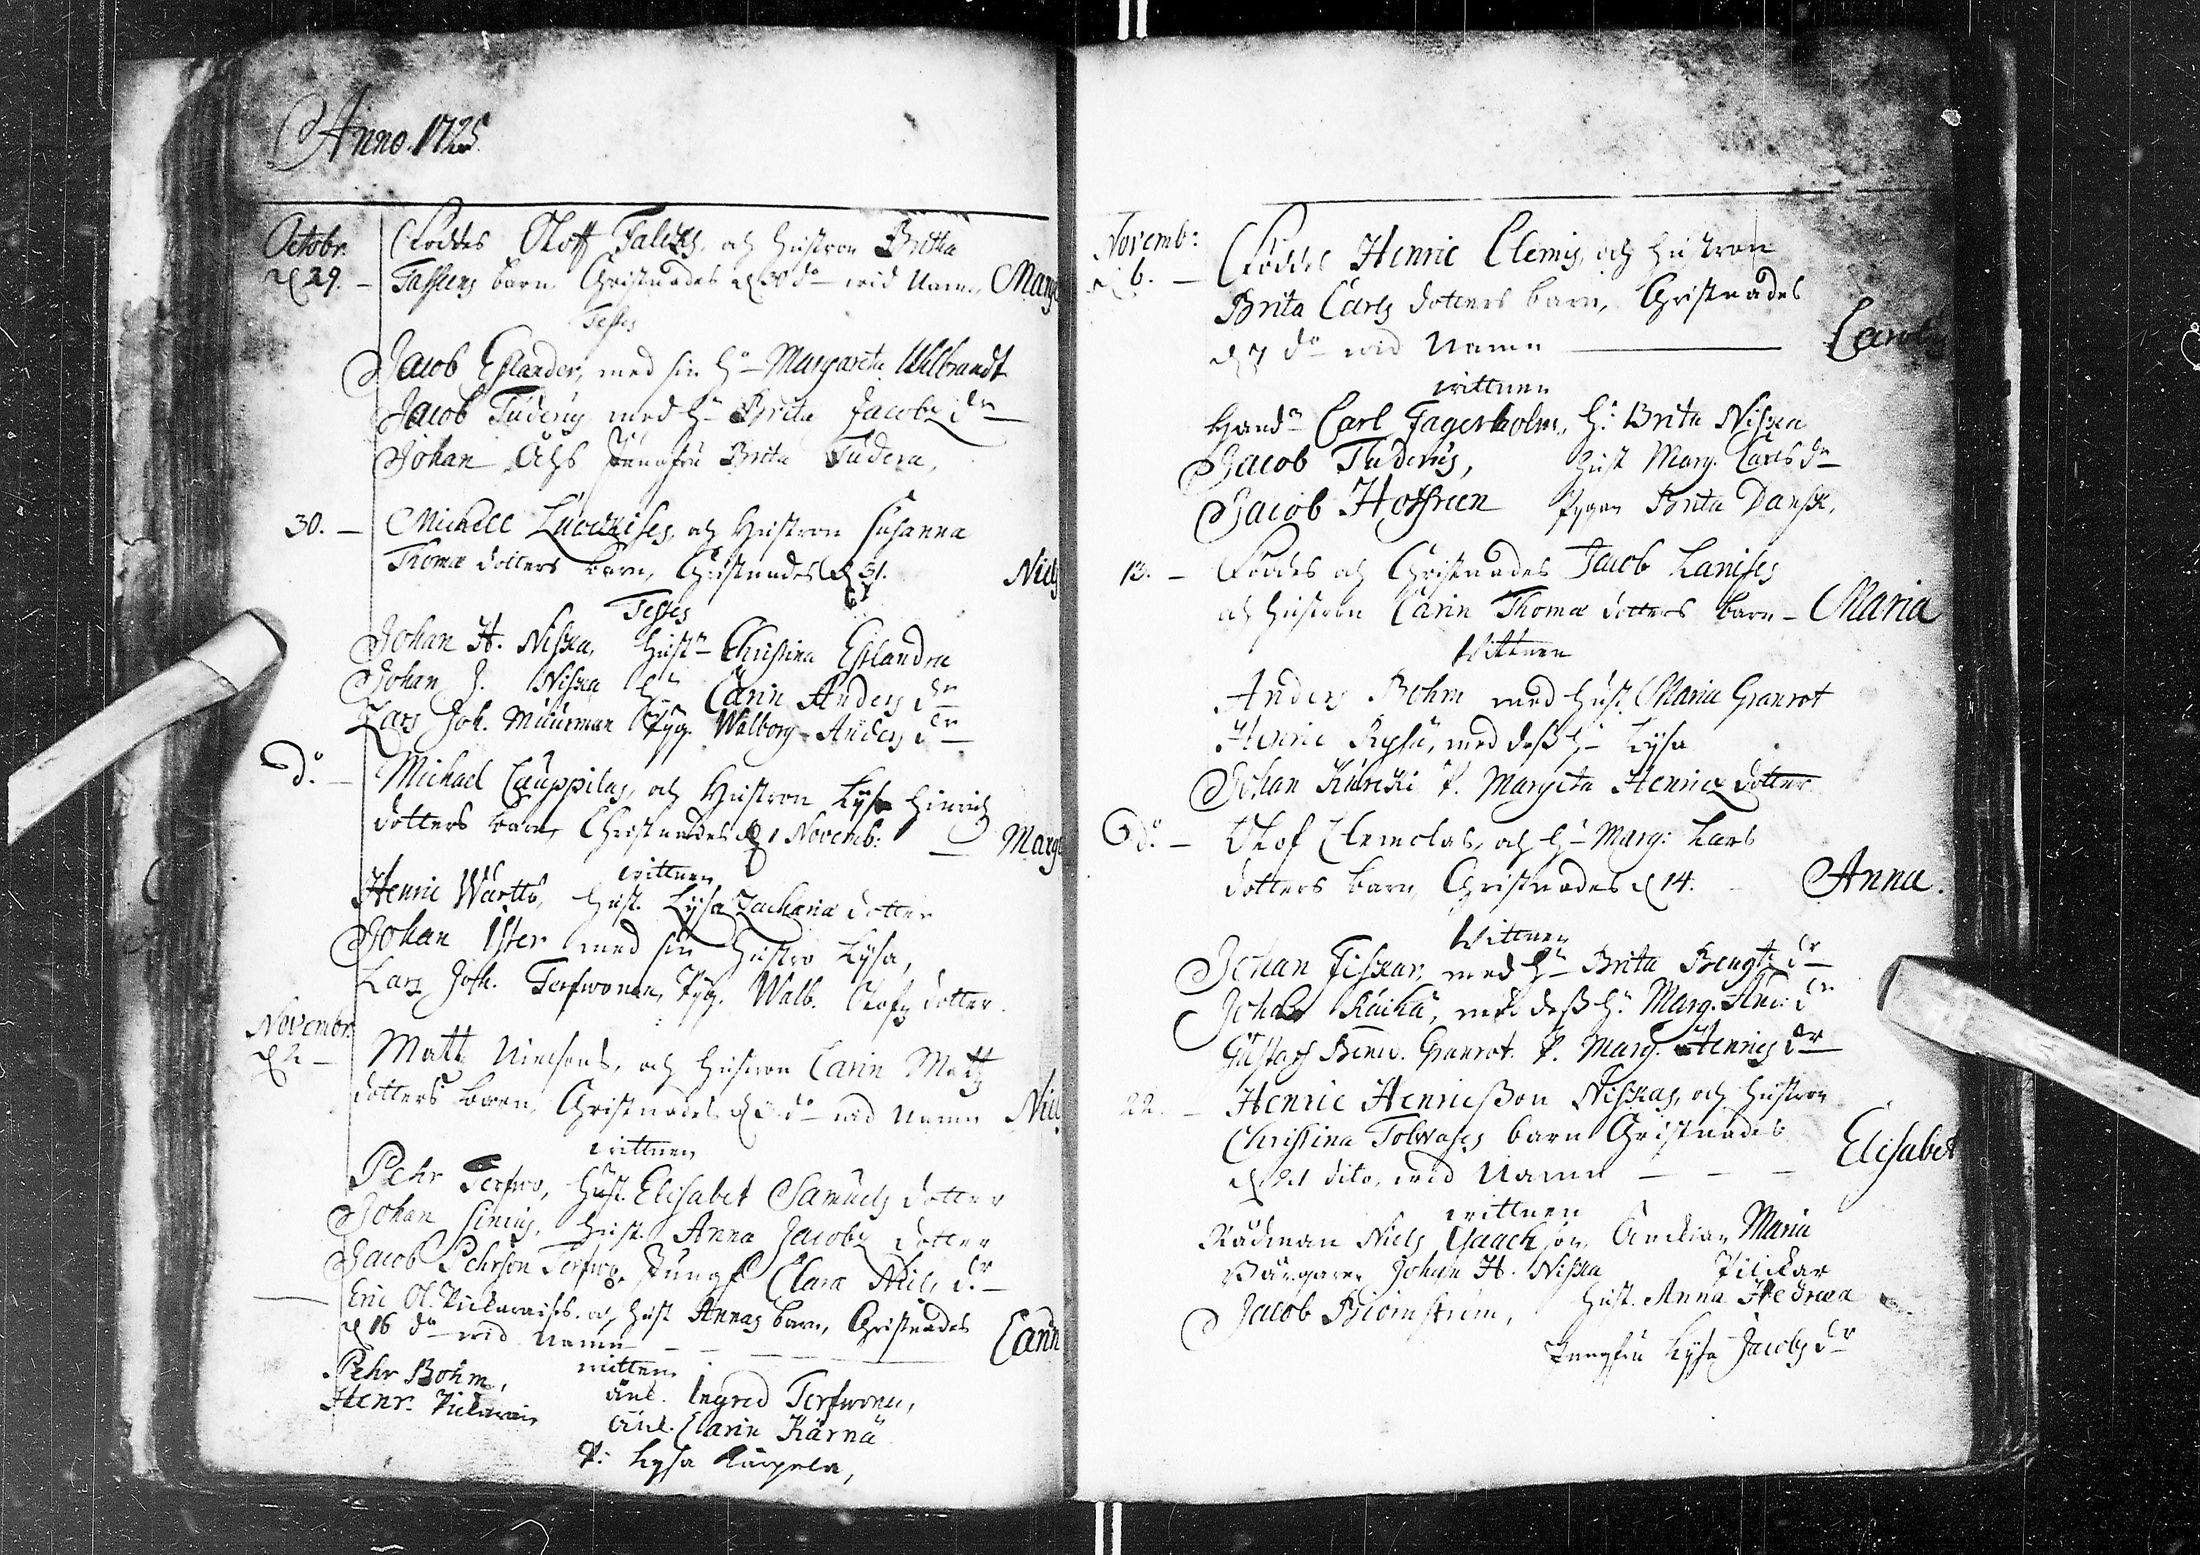 Anno 1725.
Octobr. Föddes Oloff Falcks, och hustron Britha
d 29. – Fassens barn, Christnades d 30 do wid Namn Marg
Testes
Jacob Estlander, med sin h. Margareta Wilbrandt
Jacob Tuderus med h. Brita Jacobs dr
Johan Achs Jungfru Brita Tudera,
30. – Michel och Hustron Susanna
Thomæ dotters barn, Christnades d 31. Niels
Testes
Johan H. Niska, hustr Christina Estlandra
Johan J. Niska h. Carin Anders dr
Lars Joh. Muurman Pyg. Walborg Anders dr
do. – Michael Cauppilas, och Hustron Lysa Hinrichs
dotters barn, Christnades d 1 Novemb: – Marg
wittnen
Henric Wärttö, hust. Lysa Zachariæ dotter
Johan Ister med sin hustro Lysa,
Lars Joh. Terfwonen, Pyg. Walb. Olofs dotter.
Novembr.
d 2 – Matts och hustron Carin Matts
dotters barn, Christnades d do wid namn Niels
wittnen
Pehr Terfwo, hust. Elisabet Samuels dotter
Johan Simius, hust. Anna Jacobs dotter
Jacob Pehrson Terfwo, Jungf. Clara Niels dr.
Eric Ol. och hust Annas barn, Christnades
d 16 do wid namn – – – Carin
wittnen
Pehr Bohm, änk. Ingred Terfwonen,
Henr. änk. Carin Kärnä
P: Lysa
Novemb:
d 6. – Föddes Henric Clemis, och hustron
Brita Carls dotters barn, Christnades
d 7 do wid Namn – Carol
wittnen
Hand. Carl Fagerholm, h. Brita Niska
Jacob Tuderus, hust Marg. Carls dr
Jacob Hoffreen Pygan Brita Dansk,
13. – Föddes och Christnades Jacob Lanises
och hustron Carin Thomæ dotters barn – Maria
Wittnen
Anders Bohm med hust. Maria Granrot
Henric med dess h. Lysa
Johan P. Margeta Henrics dotter
do. – Olof Clemolas, och h. Marg: Lars
dotters barn, Christnades d 14. – Anna.
Wittnen
Johan Fiskar, med h. Brita Bengts dr
Johan med dess h. Marg. And: dr
Gustaf Bened. Granrot. P. Marg. Henrics dr
22. – Henric Henricsson Niskas, och hustron
Christina Tolwases barn Christnades
d 24 dito, wid Namn – – – Elisabet
wittnen
Rådman Niels Isaackson, Änckian Maria
Pilckar
Borgaren Johan H. Niska
Jacob Biörnström, hust. Anna Hedræa
Jungfru Lysa Jacobs dr